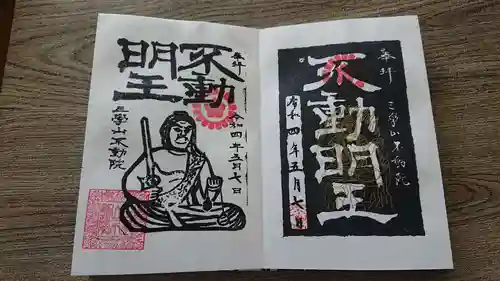 奉拝
不動
明王
令和四年五月七日
三學山不動院
奉拝
三學山不動院
不動明王
令和四年五月七日